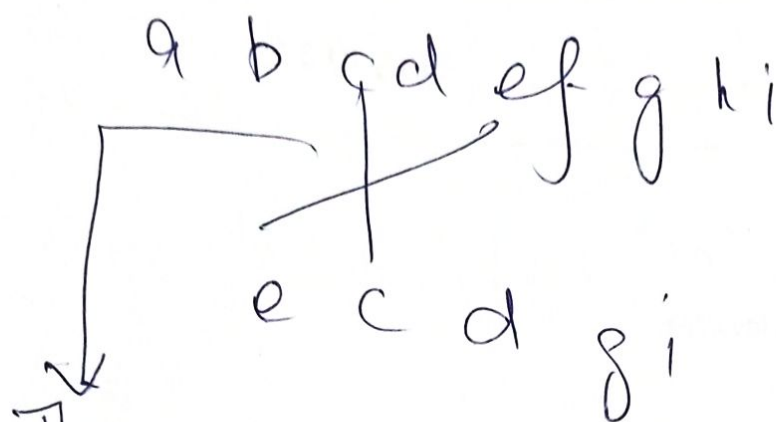 a b c d e f g h i
e c d g i